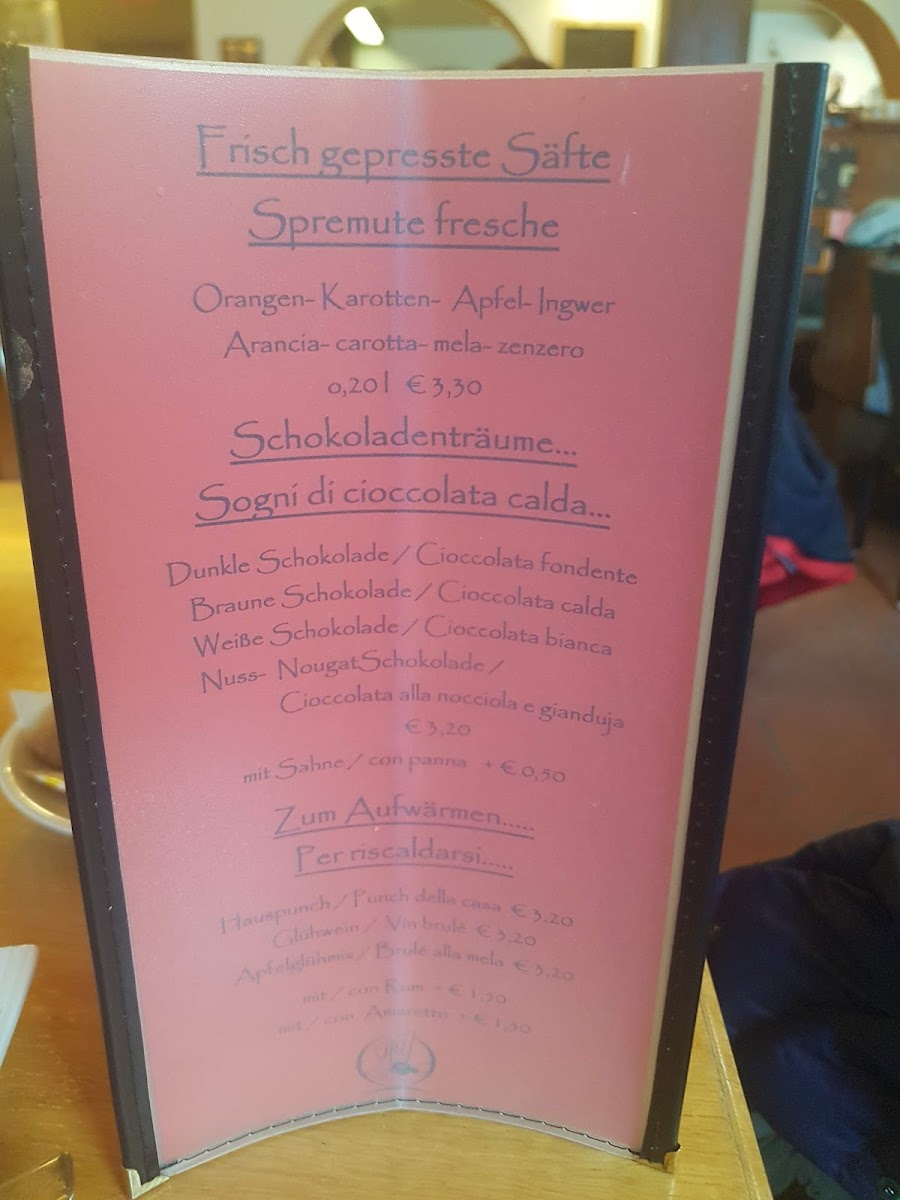 Frisch gepresste Säfte
Spremute fresche
Orangen- Karotten- Apfel- Ingwer
Arancia- carotta- mela- zenzero
0,20 l € 3,30
Schokoladenträume...
Sogni di cioccolata calda...
Dunkle Schokolade / Cioccolata fondente
Braune Schokolade / Cioccolata calda
Weiße Schokolade / Cioccolata bianca
Nuss- NougatSchokolade /
Cioccolata alla nocciola e gianduja
€ 3,20
mit Sahne / con panna + € 0,50
Zum Aufwärmen.....
Per riscaldarsi.....
Hauspunch / Punch della casa € 3,20
Glühwein / Vin brulé € 3,20
Apfelglühmix / Brulé alla mela € 3,20
mit / con Rum + € 1,50
mit / con Amaretto + € 1,50